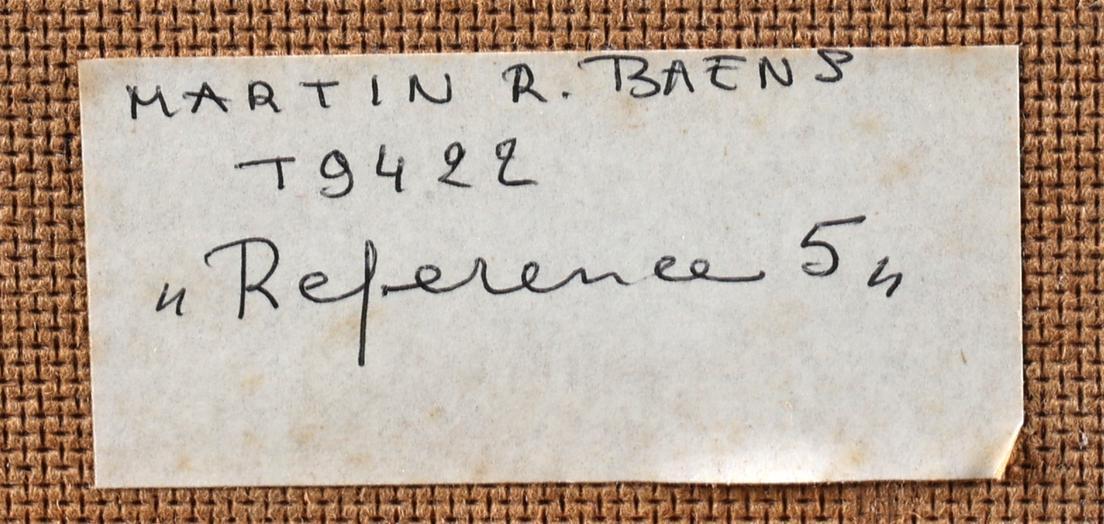 MARTIN R. BAENS
T9422
„Reference 5„